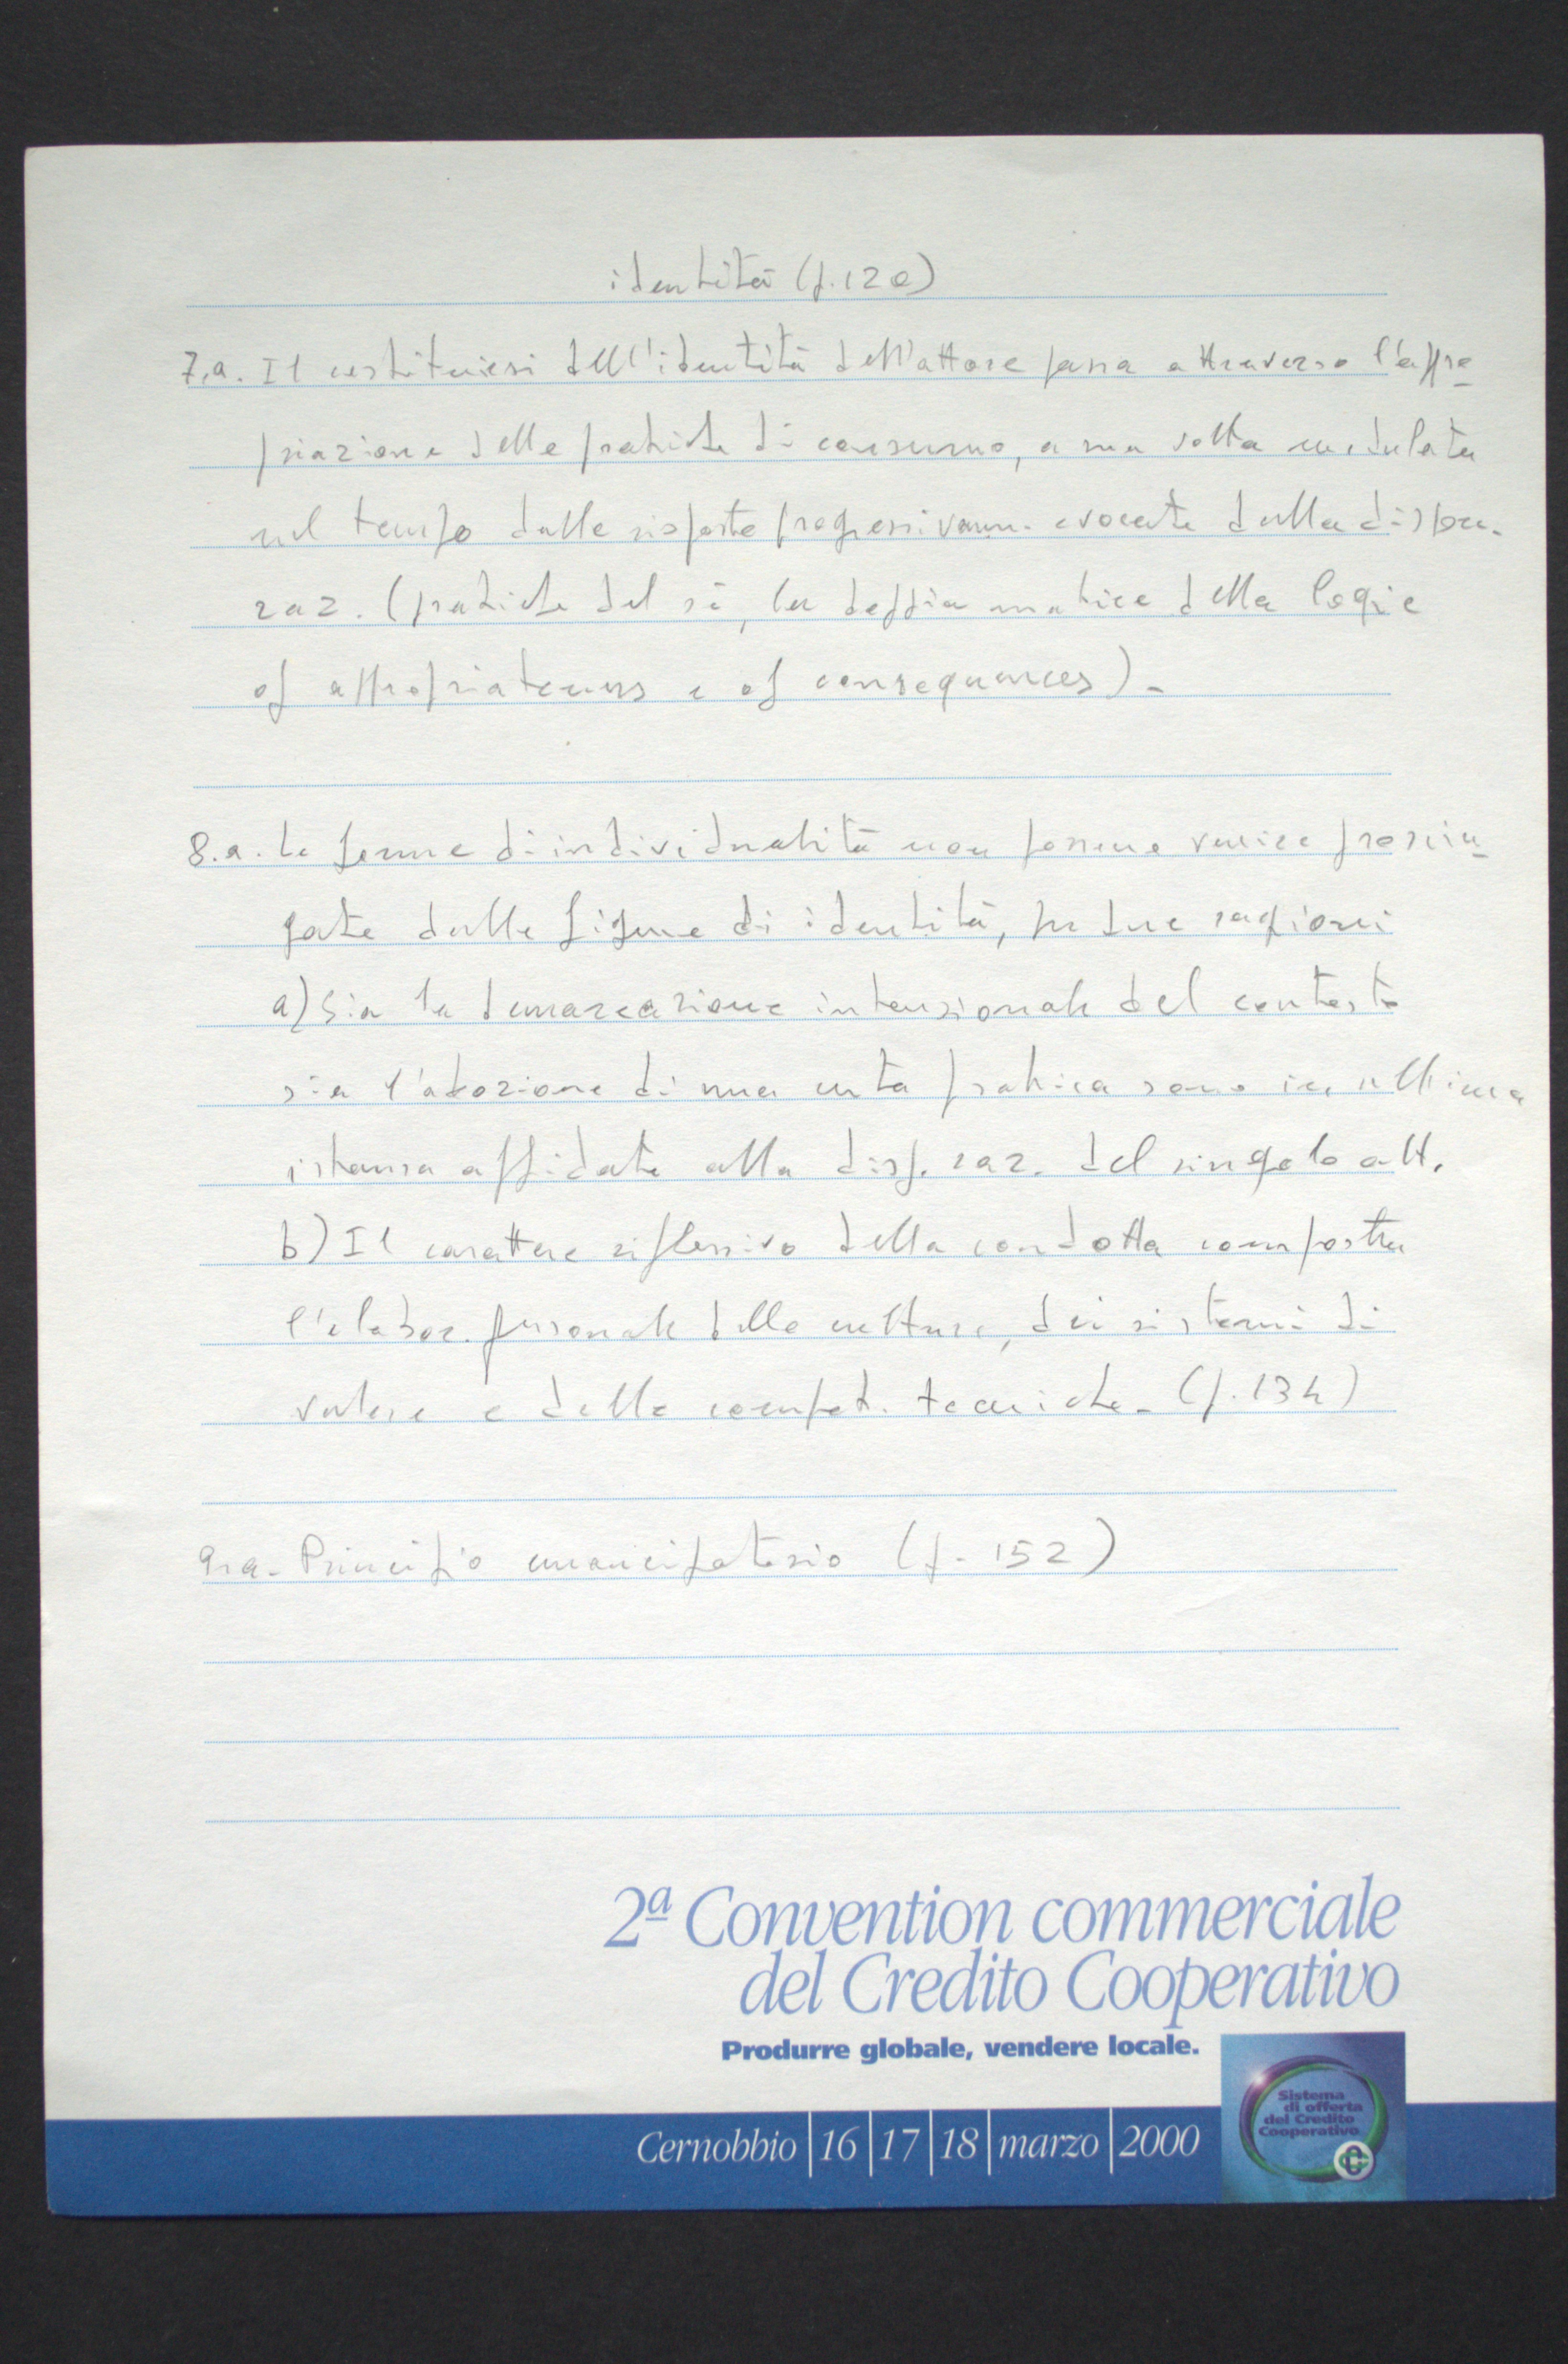 identità (p. 120)
7.a. Il costituirsi dell'identità dell'attore passa attraverso l'appro
priazione delle pratiche di consumo, a sua volta modulata
nel tempo dalle risposte progressivam. evocate dalla dispos.
raz. (pratiche del sé, la doppia matrice della logic
of appropriateness e of consequences).
8.a. Le forme di individualità non possono venire prosciu
gate dalle figure di identità, per due ragioni
a) Sia la demarcazione intenzionale del contesto
sia l'adozione di una certa pratica sono in ultima
istanza affidate alla disp. raz. del singolo att.
b) Il carattere riflessivo della condotta comporta
l'elabor. personale delle culture, dei sistemi di
valore e delle compet. tecniche. (p. 134)
9.a. Principio emancipatorio (p. 152)
2ª Convention commerciale
del Credito Cooperativo
Produrre globale, vendere locale.
Sistema
di offerta
del Credito
Cooperativo
Cernobbio | 16 | 17 | 18 | marzo | 2000